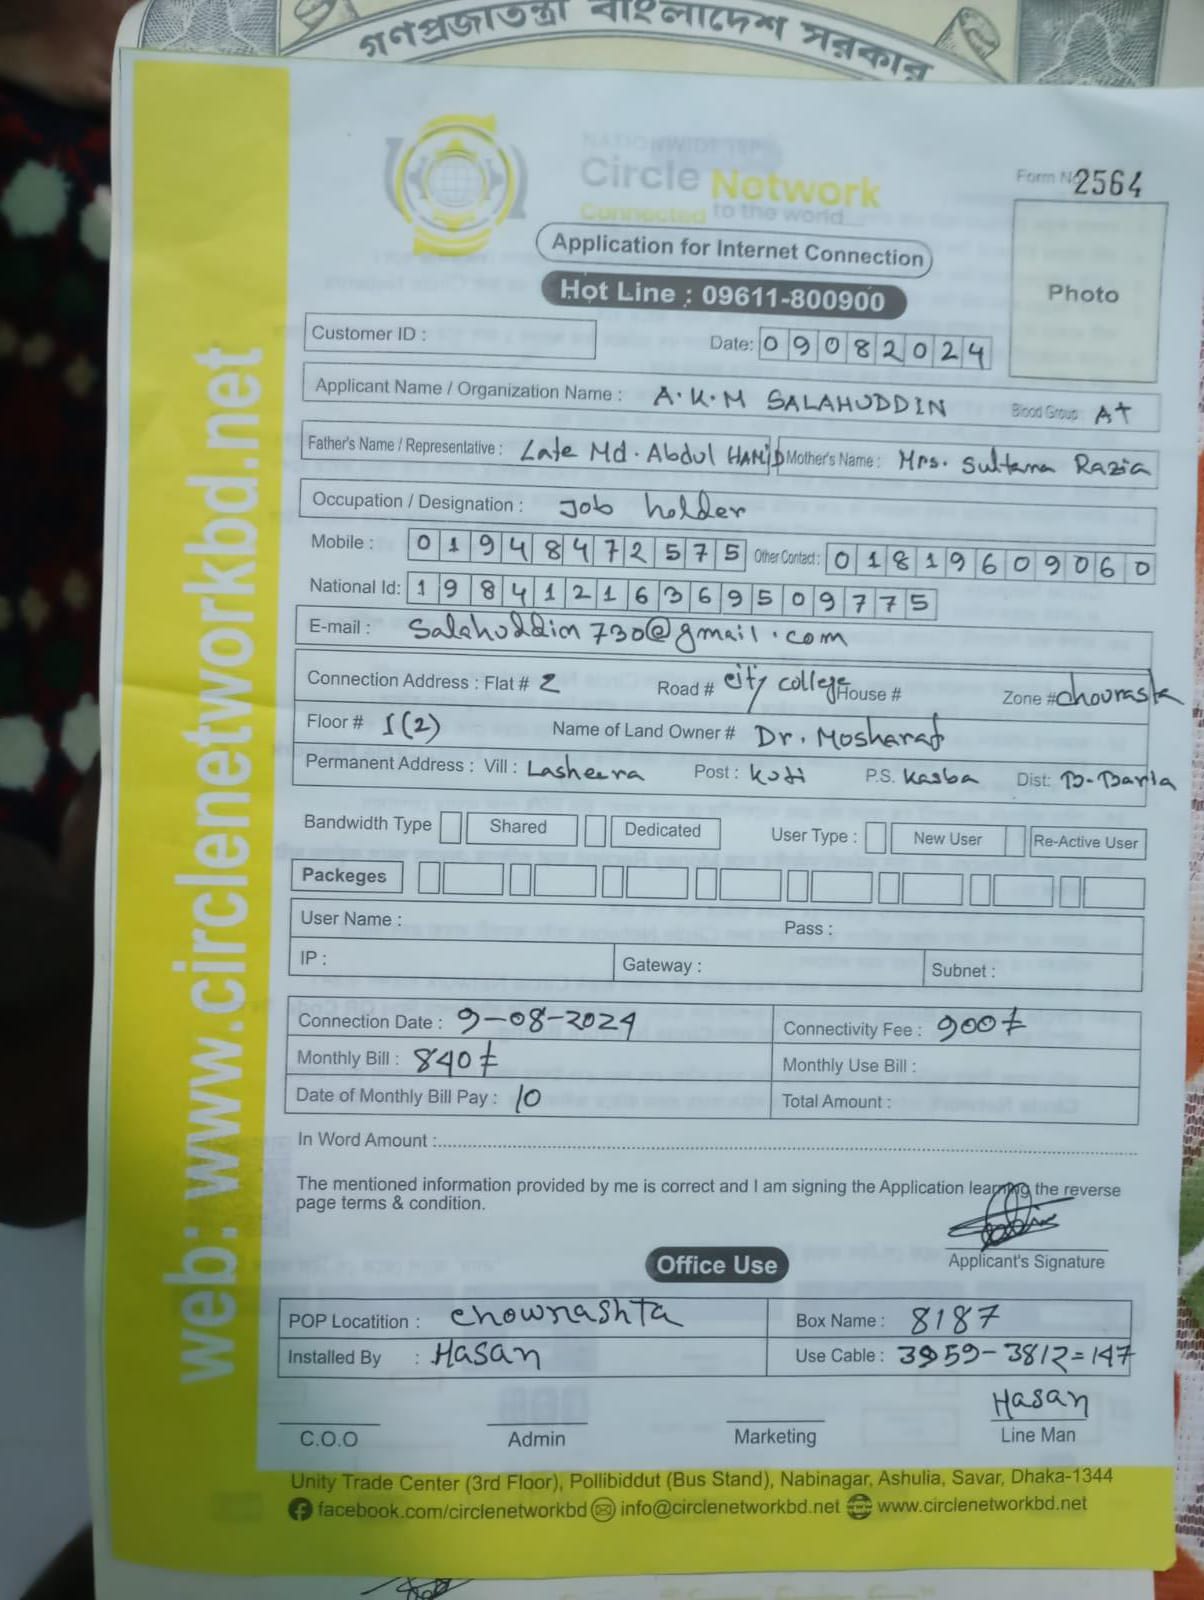 গণপ্রজাতন্ত্রী বাংলাদেশ সরকার
NATIONWIDE ISP
Circle Network
Connected to the world
Form No 2564
Application for Internet Connection
Hot Line : 09611-800900
Photo
Customer ID :
Date: 09082024
Applicant Name / Organization Name : A.K.M SALAHUDDIN Blood Group: A+
Father's Name / Representative : Late Md. Abdul HAMiD Mother's Name : Mrs. Sultana Razia
Occupation / Designation : Job holder
Mobile : 01948472575 Other Contact : 01819609060
National Id: 19841216369509775
E-mail : Salahuddin730@gmail.com
Connection Address : Flat # 2 Road # city college House # Zone # chourasta
Floor # 1(2) Name of Land Owner # Dr. Mosharaf
Permanent Address : Vill : Lasheera Post : Kuti P.S. Kasba Dist: B-Baria
Bandwidth Type Shared Dedicated User Type : New User Re-Active User
Packeges
User Name : Pass :
IP : Gateway : Subnet :
Connection Date : 9-08-2024 Connectivity Fee : 900/=
Monthly Bill : 840/= Monthly Use Bill :
Date of Monthly Bill Pay : 10 Total Amount :
In Word Amount :
The mentioned information provided by me is correct and I am signing the Application learning the reverse
page terms & condition.
Applicant's Signature
Office Use
POP Locatition : chowrashta Box Name : 8187
Installed By : Hasan Use Cable : 3959-3812=147
Hasan
C.O.O Admin Marketing Line Man
Unity Trade Center (3rd Floor), Pollibiddut (Bus Stand), Nabinagar, Ashulia, Savar, Dhaka-1344
facebook.com/circlenetworkbd info@circlenetworkbd.net www.circlenetworkbd.net
web: www.circlenetworkbd.net